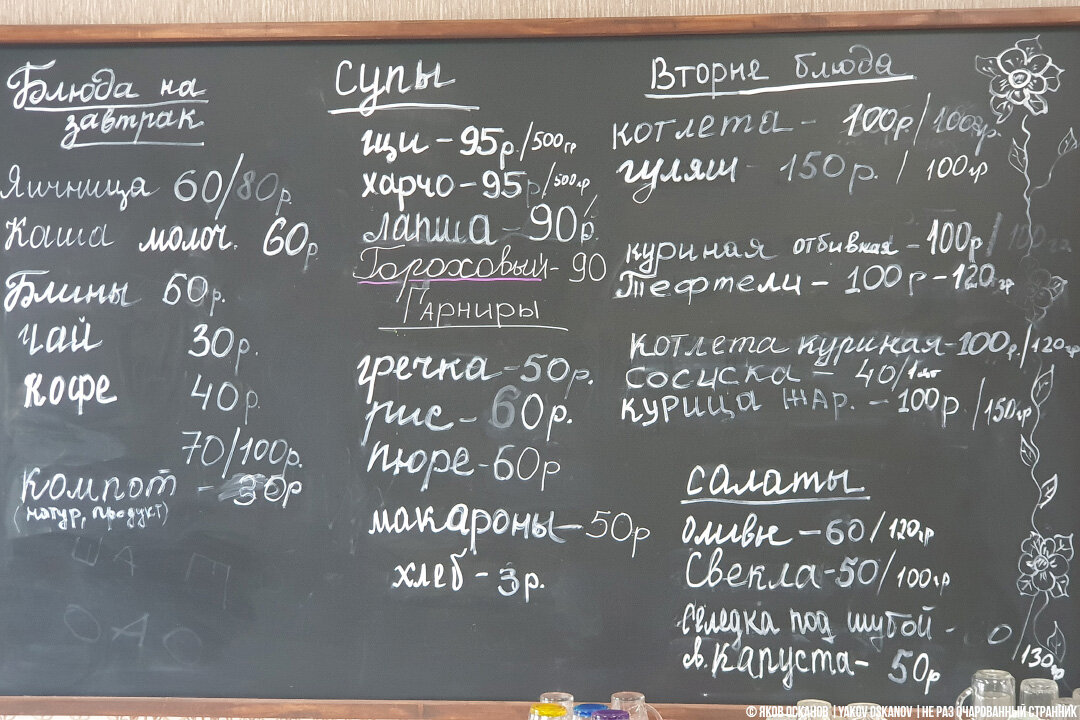 Блюда на
завтрак
Яичница 60/80р
Каша молоч. 60р
Блины 60р.
Чай 30р.
Кофе 40р.
70/100р.
Компот - 30р
(натур, продукт)
Супы
щи - 95р./500гр
харчо - 95р/500гр
лапша - 90р.
Гороховый - 90
Гарниры
гречка - 50р.
рис - 60р.
пюре - 60р
макароны - 50р
хлеб - 3р.
Вторые блюда
котлета - 100р/100гр.
гуляш - 150р. / 100гр
куриная отбивная - 100р/100гр
Тефтели - 100р - 120гр
Котлета куриная - 100р./120гр
Сосиска - 40/1шт
Курица жар. - 100р /150гр
Салаты
оливье - 60/120гр
Свекла - 50/100гр
Селедка под шубой -
130гр
св. Капуста - 50р
© ЯКОВ ОСКАНОВ | YAKOV OSKANOV | НЕ РАЗ ОЧАРОВАННЫЙ СТРАННИК